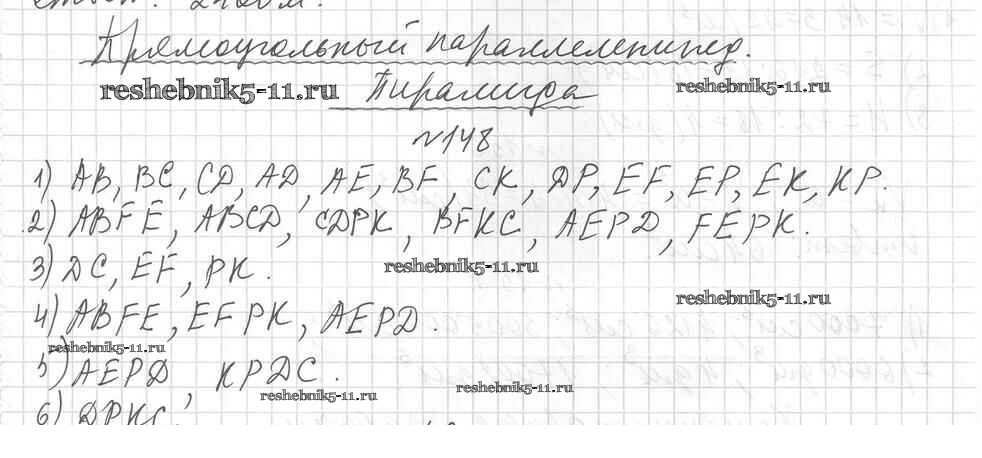 Прямоугольный параллелепипед.
reshebnik5-11.ru Пирамида reshebnik5-11.ru
№148
1) AB, BC, CD, AD, AE, BF, CK, DP, EF, EP, EK, KP.
2) ABFE, ABCD, CDPK, BFKC, AEPD, FEPK.
3) DC, EF, PK.
reshebnik5-11.ru
reshebnik5-11.ru
4) ABFE, EFPK, AEPD.
reshebnik5-11.ru
5) AEPD, KPDC.
reshebnik5-11.ru reshebnik5-11.ru
6) DPKC,